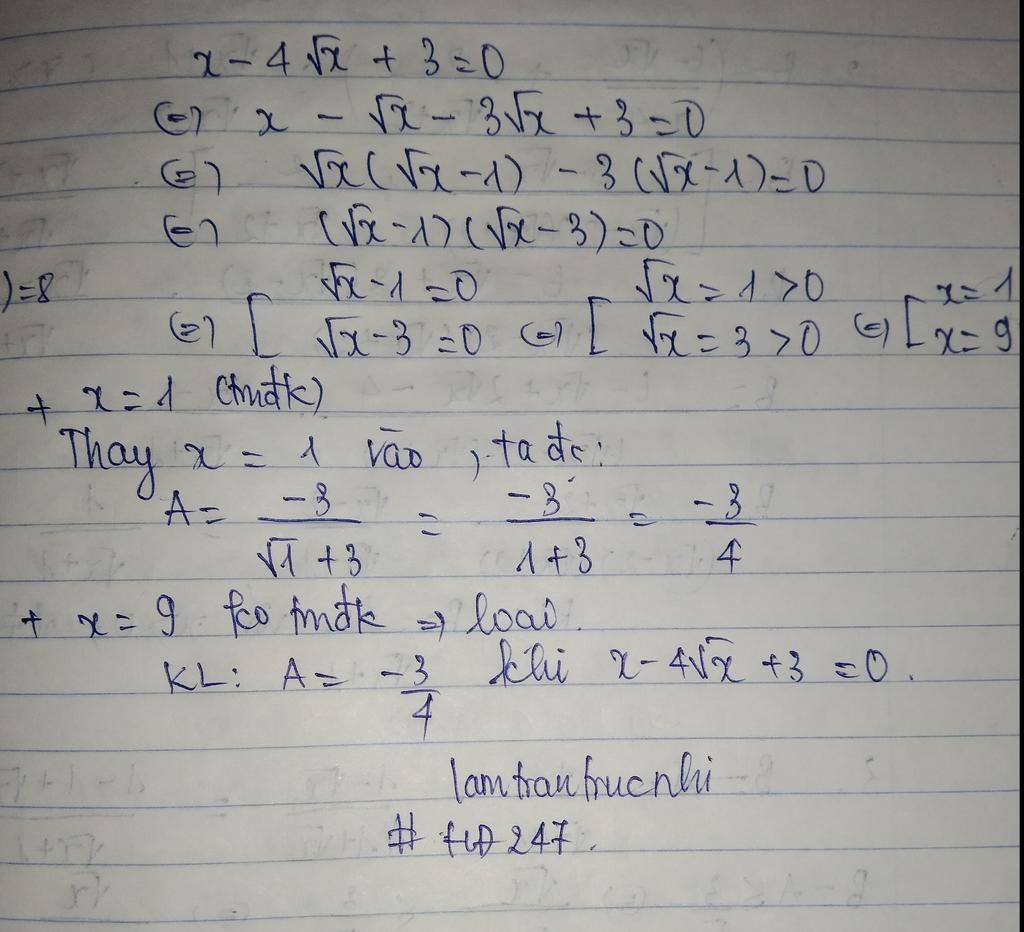 x - 4√x + 3 = 0
(=) x - √x - 3√x + 3 = 0
(=) √x(√x - 1) - 3(√x - 1) = 0
(=) (√x - 1)(√x - 3) = 0
) = 8
(=) [ √x - 1 = 0 √x - 3 = 0 (=) [ √x = 1 > 0 √x = 3 > 0 (=) [ x = 1 x = 9
+ x = 1 (tmđk)
Thay x = 1 vào, ta đc:
A = -3/(√1 + 3) = -3/(1 + 3) = -3/4
+ x = 9 ko tmđk => loại.
KL: A = -3/4 khi x - 4√x + 3 = 0.
lamtrantrucnhi
# 247.